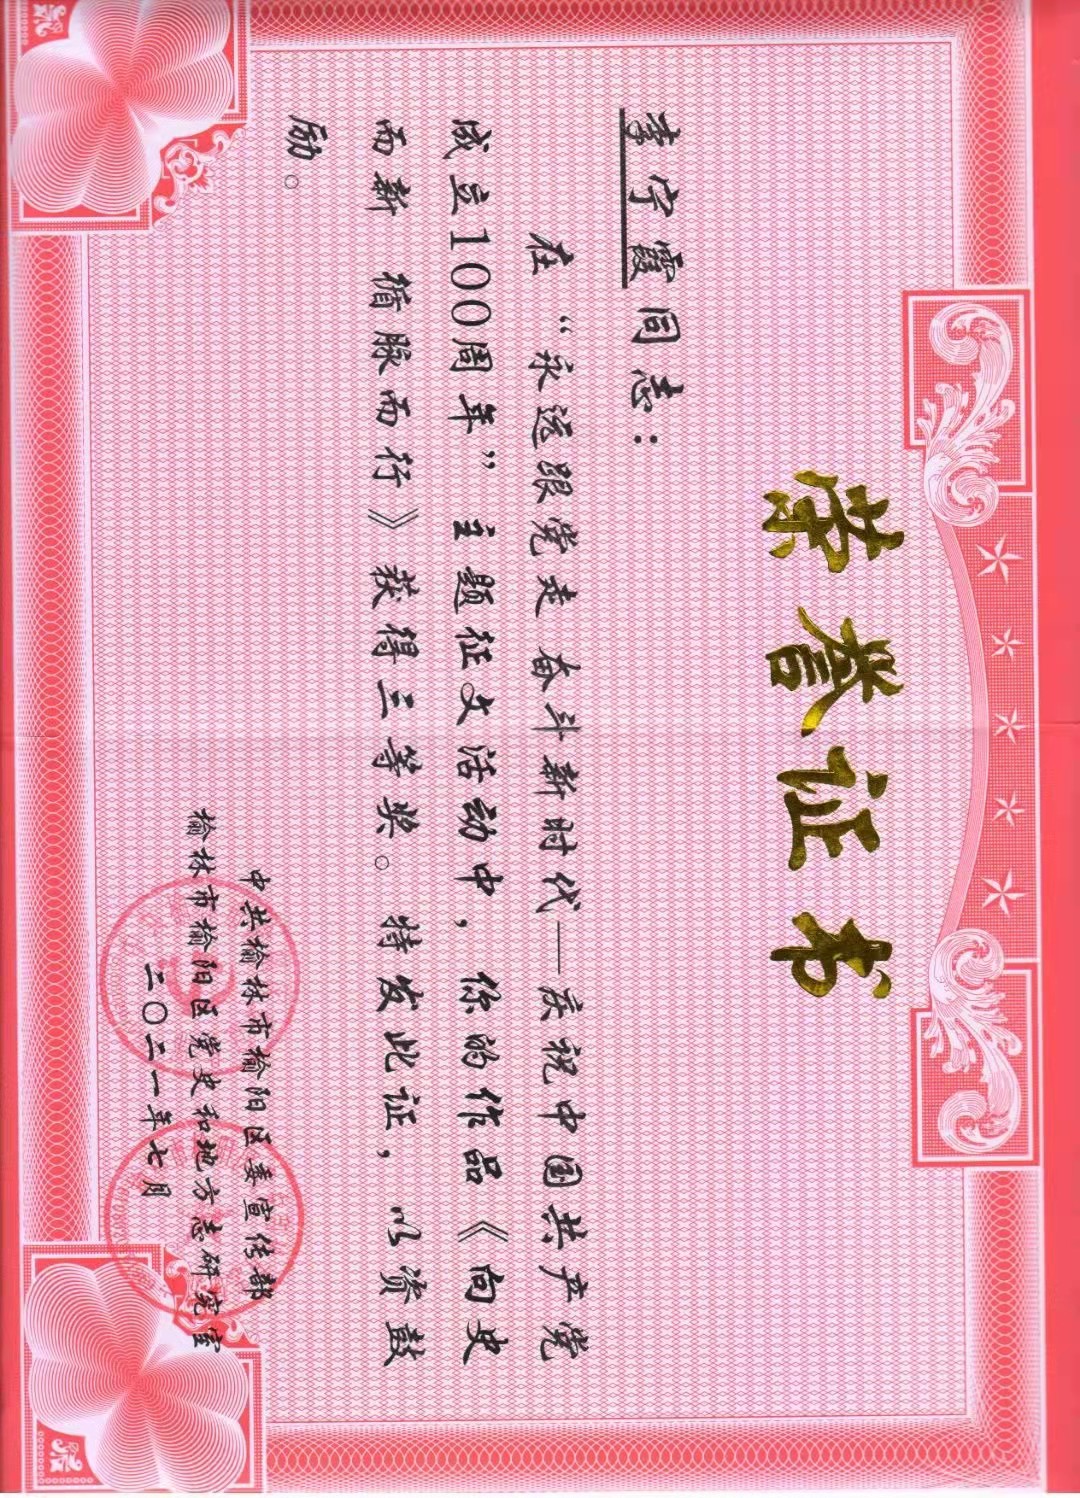 荣誉证书
李宇霞同志：
在“永远跟党走 奋斗新时代—庆祝中国共产党
成立100周年”主题征文活动中，你的作品《向史
而新 循脉而行》获得三等奖。特发此证，以资鼓
励。
中共榆林市榆阳区委宣传部
榆林市榆阳区党史和地方志研究室
二〇二一年七月